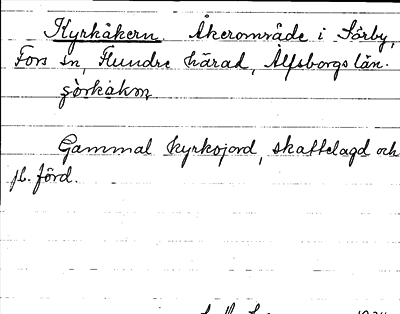 Kyrkåkern. Åkerområde i Sörby,
Fors sn, Flundre härad, Älfsborgs län.
Gammal kyrkojord, skattelagd och
förd.